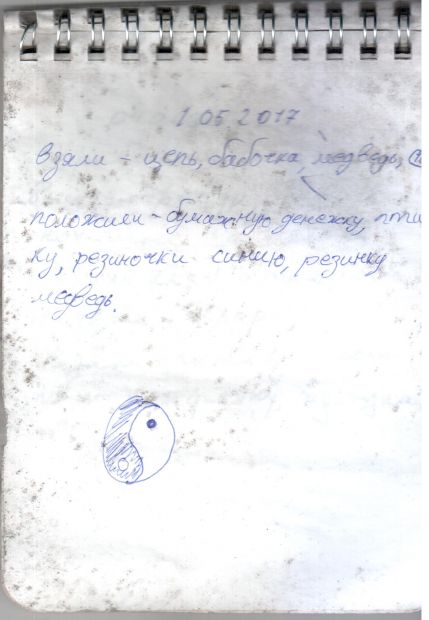 1 05 2017
взяли - цепь, бабочка, медведь,
положили - бумажную денежку, пти
ку, резиночки синию, резинку
медведь.